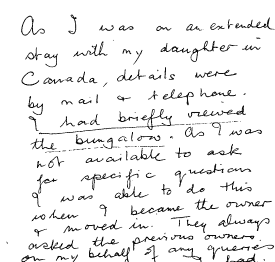 As I was on an extended
stay with my daughter in
Canada, details were
by mail & telephone.
I had briefly viewed
the bungalow. As I was
not available to ask
for specific questions
I was able to do this
when I became the owner
& moved in. They always
asked the previous owners
on my behalf of any queries
I had.